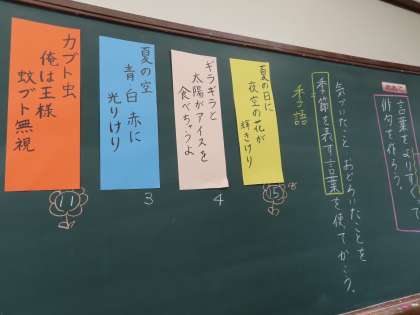 めあて
言葉をよ
俳句を作ろう。
気づいたこと おどろいたことを
季節を表す言葉を使ってかこう。
季語
夏の日に
夜空の花が
輝きけり
15
ギラギラと
太陽がアイスを
食べちゃうよ
4
夏の空
青白赤に
光りけり
3
カブト虫
俺は王様
蚊ブト無視
11